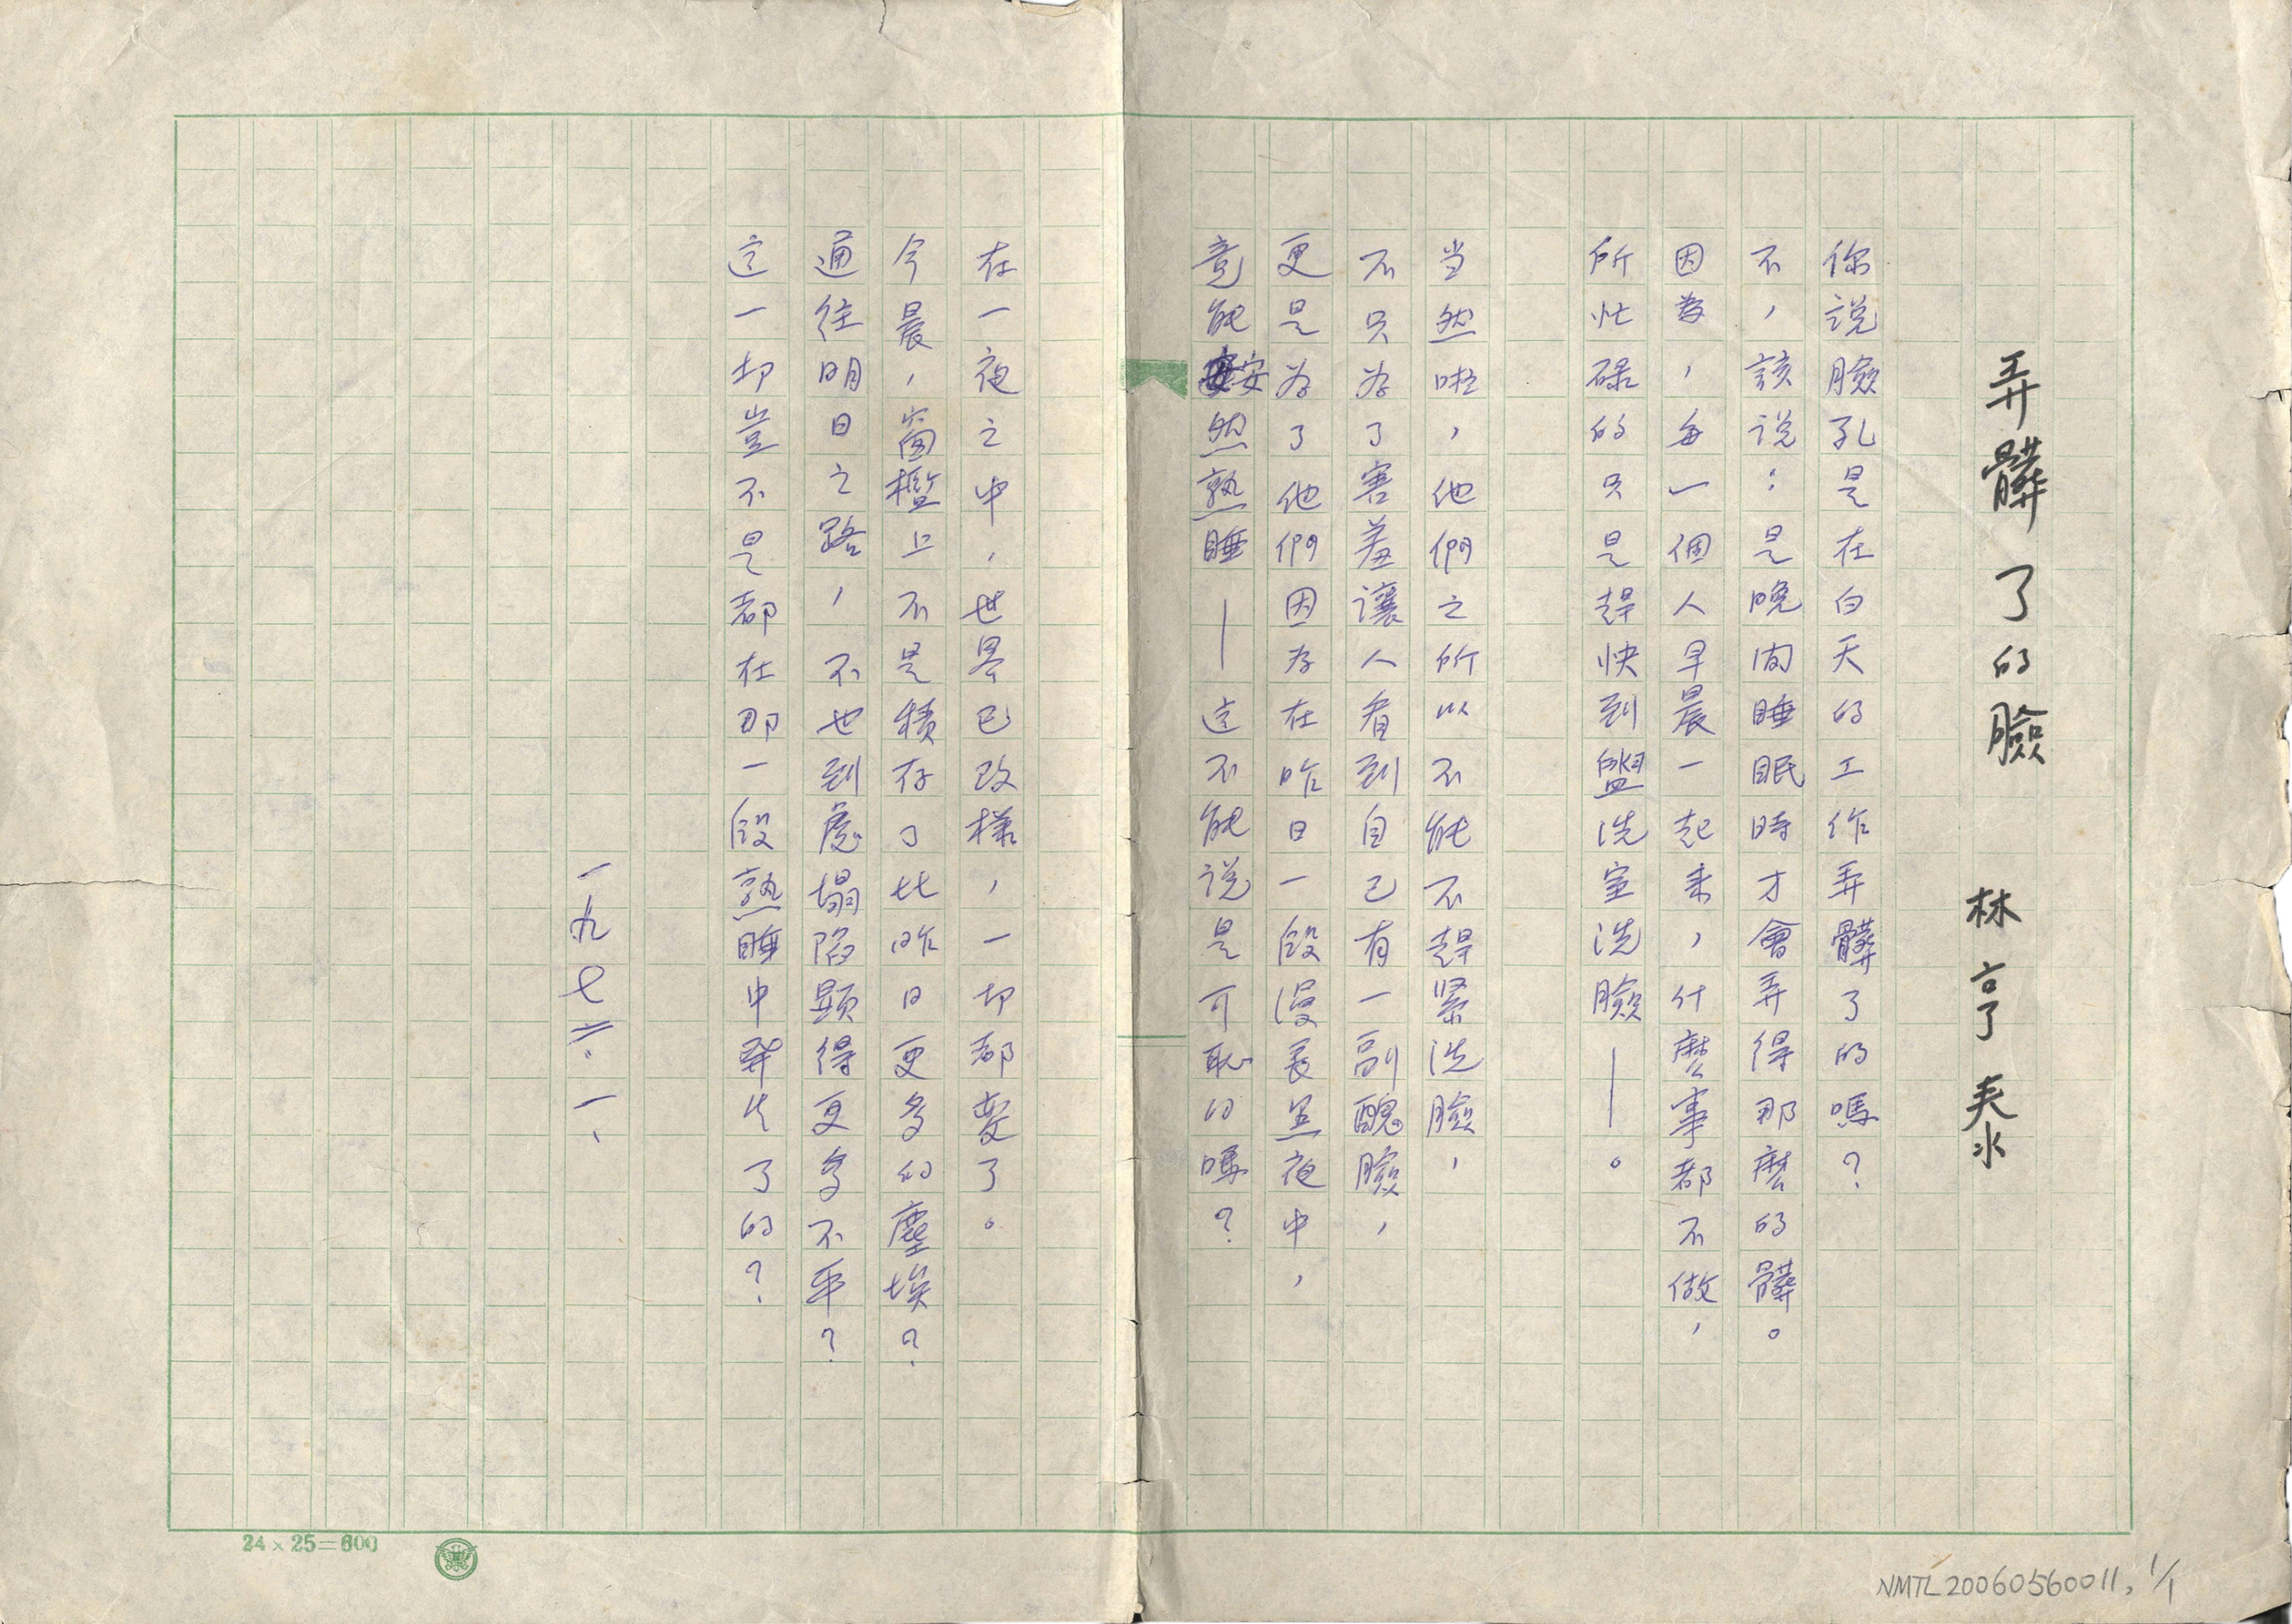 弄髒了的臉 林亨泰
你说臉孔是在白天的工作弄髒了的嗎?
不,該说:是晚间睡眠時才會弄得那麽的髒。
因為,每一個人早晨一起来,什麽事都不做,
所忙碌的只是趕快到盥洗室洗臉——。
当然啦,他們之所以不能不趕紧洗臉,
不只为了害羞讓人看到自己有一副醜臉,
更是为了他們因为在昨日一段漫長黑夜中,
竟能安然熟睡——这不能说是可恥的嗎?
在一夜之中,世界已改樣,一切都變了。
今晨,窗檻上不是積存了比昨日更多的塵埃?
通往明日之路,不也到處塌陷顯得更多不平?
这一切豈不是都在那一段熟睡中發生了的?
一九七二.一、
24×25=600
NMTL20060560011, 1/1